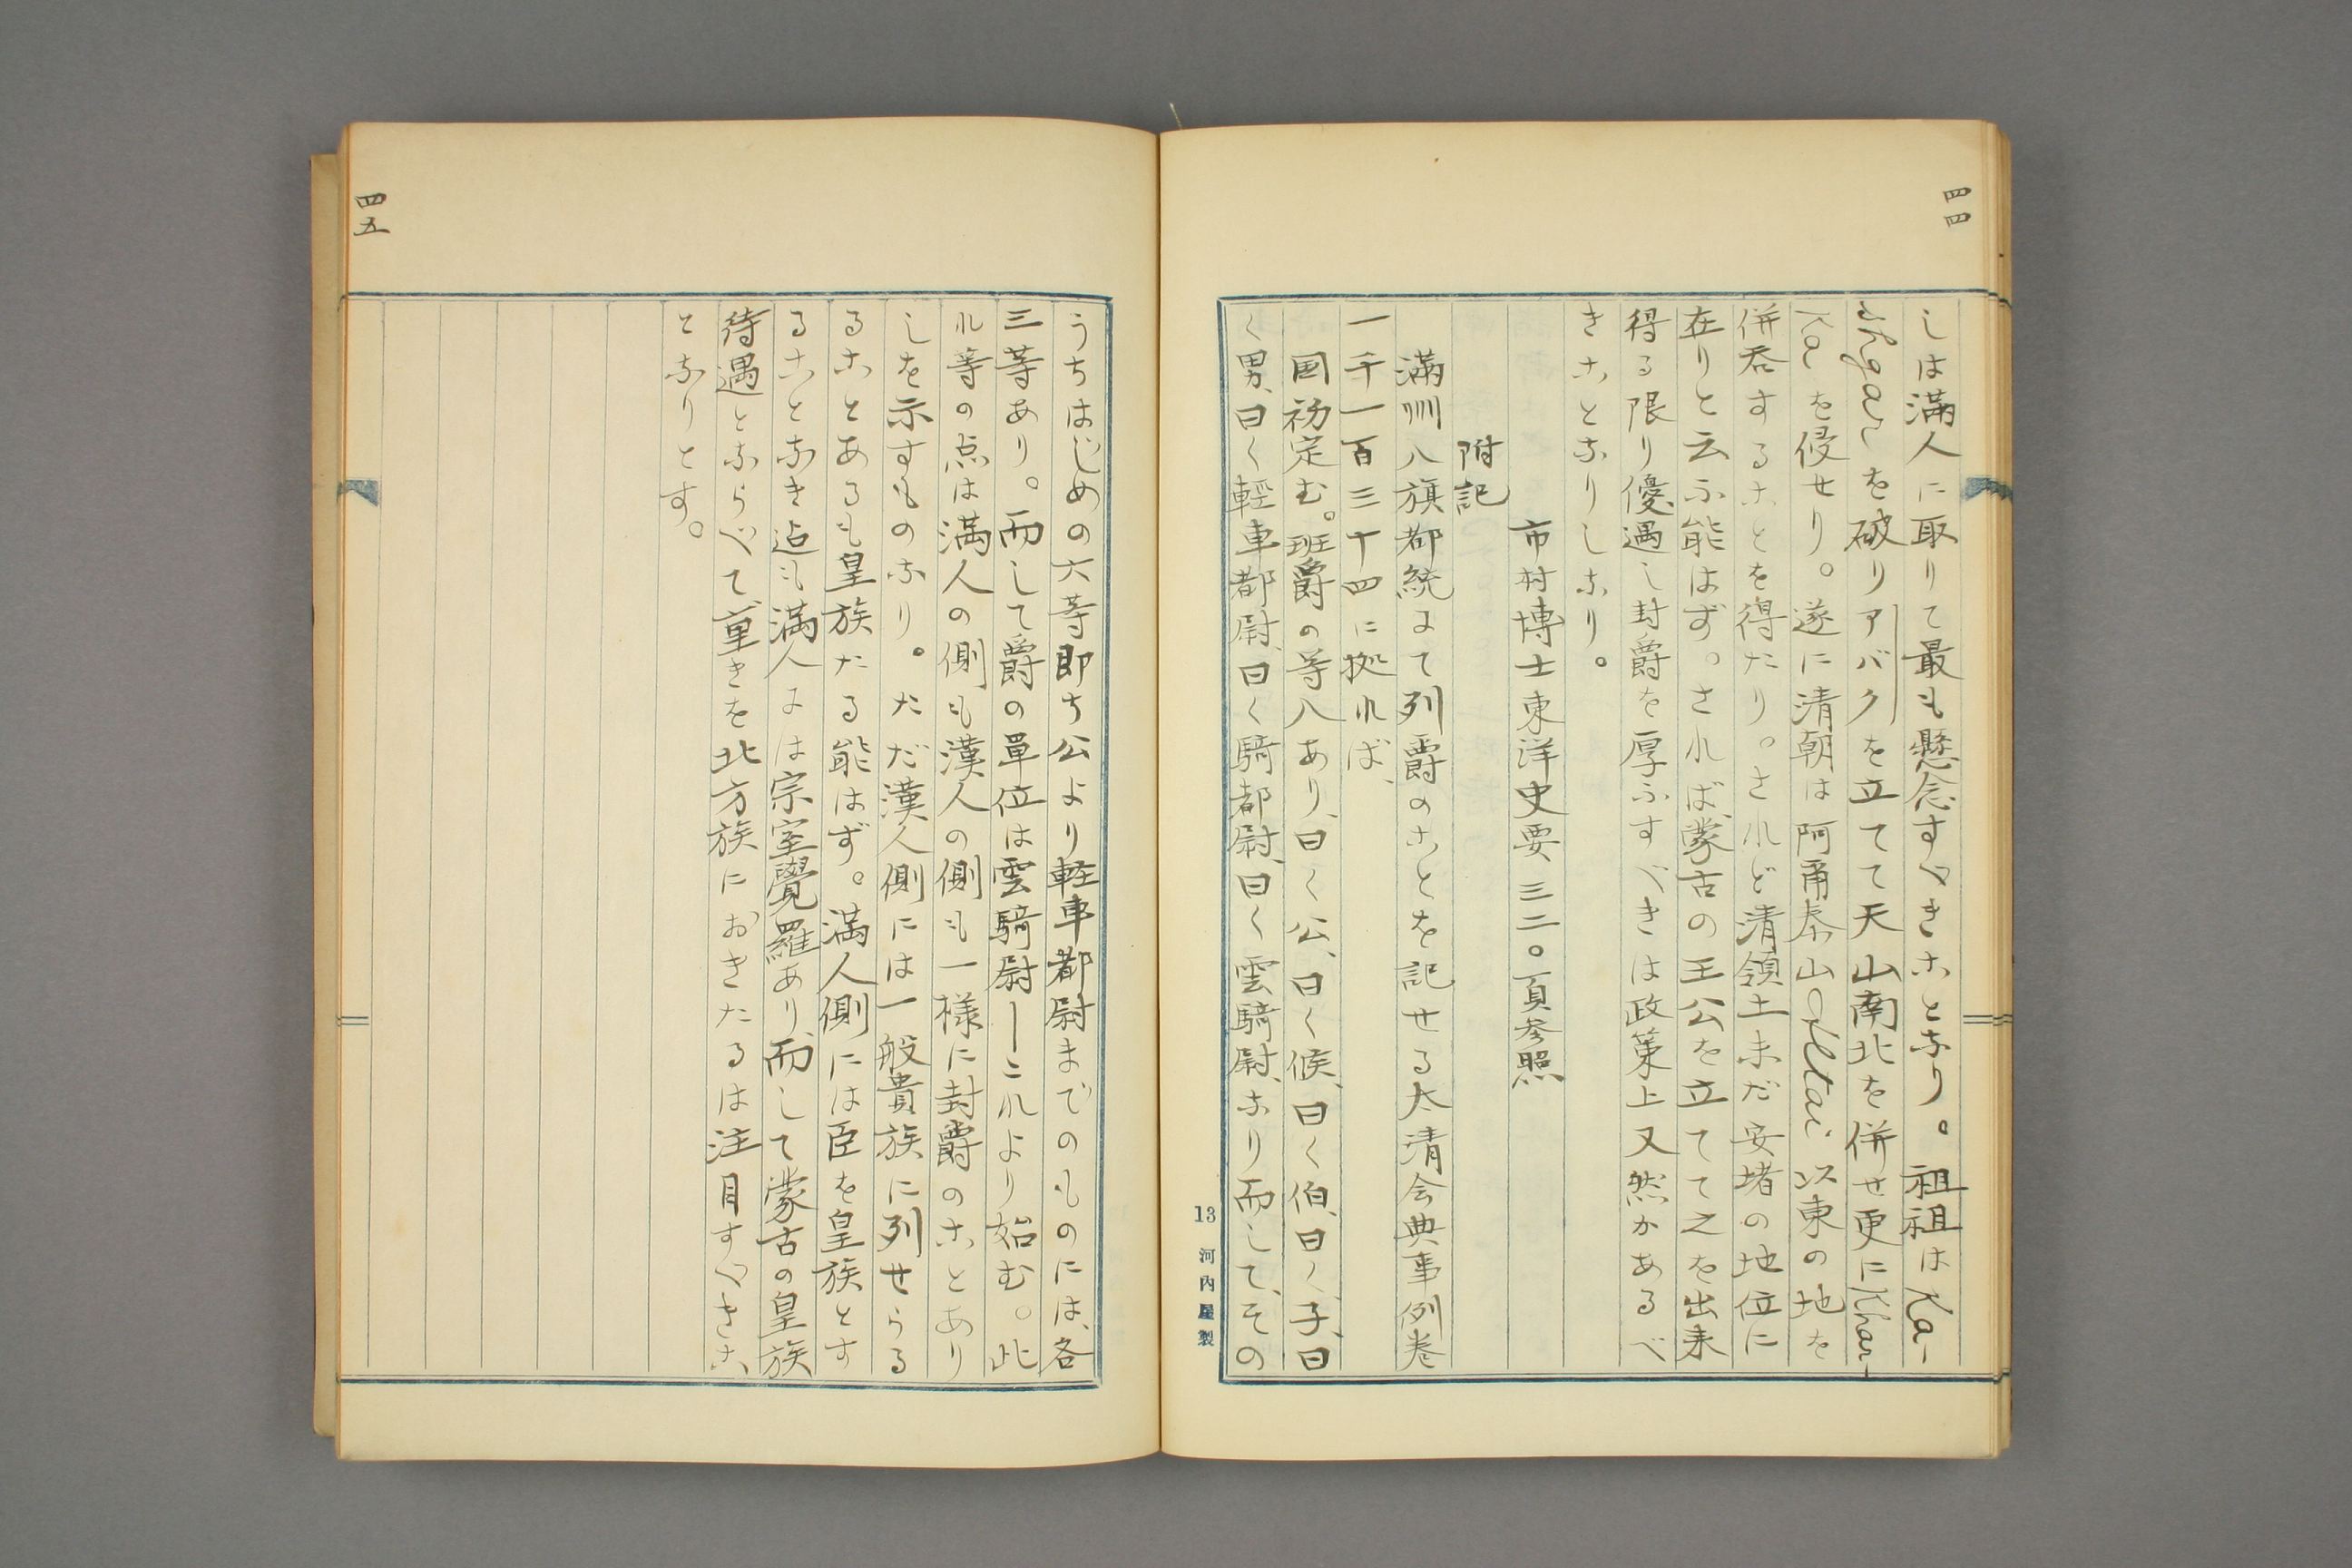 四四
しは満人に取りて最も懸念すべきことなり。祖祖はKa-
shgarを破りアバクを立てて天山南北を併せ更にKhar-
kaを侵せり。遂に清朝は阿甬泰山Altai以東の地を
併呑することを得たり。されど清領土未だ安堵の地位に
在りと云ふ能はず。されば、蒙古の王公を立てて之を出来
得る限り優遇し封爵を厚ふすべきは政策上又然かあるべ
きことなりしなり。
市村博士東洋史要 三二〇頁参照
附記
満州八旗都統にて列爵のことを記せる大清会典事例巻
一千一百三十四に拠れば、
国初定む。班爵の等八あり、曰く公、曰く候、曰く伯、曰く子、曰
く男、曰く輕車都尉、曰く騎都尉、曰く雲騎尉、なり而して、その
13 河内屋製
四五
うちはじめの六等即ち公より軽車都尉までのものには、各
三等あり。而して爵の單位は雲騎尉—これより始む。此
れ等の点は満人の側も漢人の側も一様に封爵のことあり
しを示すものなり。ただ漢人側には一般貴族に列せらる
ることあるも皇族たる能はず。満人側には臣を皇族とす
ることなき迄も満人には宗室覺羅あり、而して蒙古の皇族
待遇とならべて、重きを北方族におきたるは注目すべきこ
となりとす。